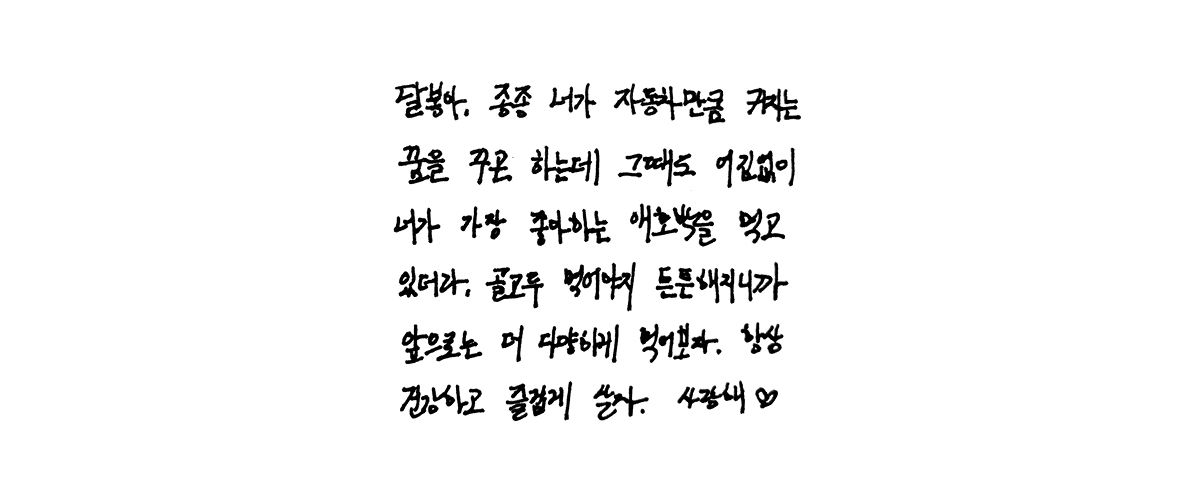 달봉아, 종종 너가 자동차만큼 커지는
꿈을 꾸곤 하는데 그때도 어김없이
너가 가장 좋아하는 애호박을 먹고
있더라. 골고루 먹어야지 튼튼해지니까
앞으로는 더 다양하게 먹어보자. 항상
건강하고 즐겁게 살자. 사랑해♡